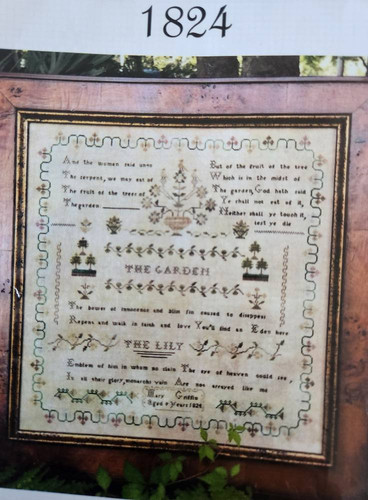 1824
And the woman said unto
The serpent, we may eat of
The fruit of the trees of
The garden
But of the fruit of the tree
Which is in the midst of
The garden, God hath said
Ye shall not eat of it,
Neither shall ye touch it,
lest ye die
THE GARDEN
The bower of innocence and bliss Sin caused to disappear
Repent and walk in faith and love You'll find an Eden here
THE LILY
Emblem of him in whom no stain The eye of heaven could see,
In all their glory, monarchs vain Are not arrayed like me
Mary Griffin
Aged 9 Years 1824